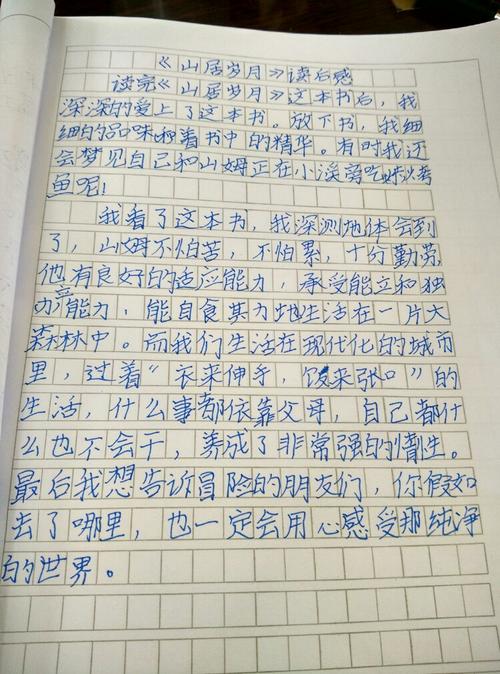 《山居岁月》读后感
读完《山居岁月》这本书后，我
深深的爱上了这本书。放下书，我细
细的品味着书中的精华。有时我还
会梦见自己和山姆正在小溪旁吃烤
鱼呢！
我看了这本书，我深测地体会到
了，山姆不怕苦，不怕累，十分勤劳
他有良好的适应能力，承受能立和独
办产能力，能自食其力地生活在一片大
森林中。而我们生活在现代化的城市
里，过着“衣来伸手，饭来张口”的
生活，什么事都依靠父母，自己都什
么也不会干，养成了非常强的惰生。
最后我想告诉冒险的朋友们，你假如
去了哪里，也一定会用心感受那纯净
的世界。